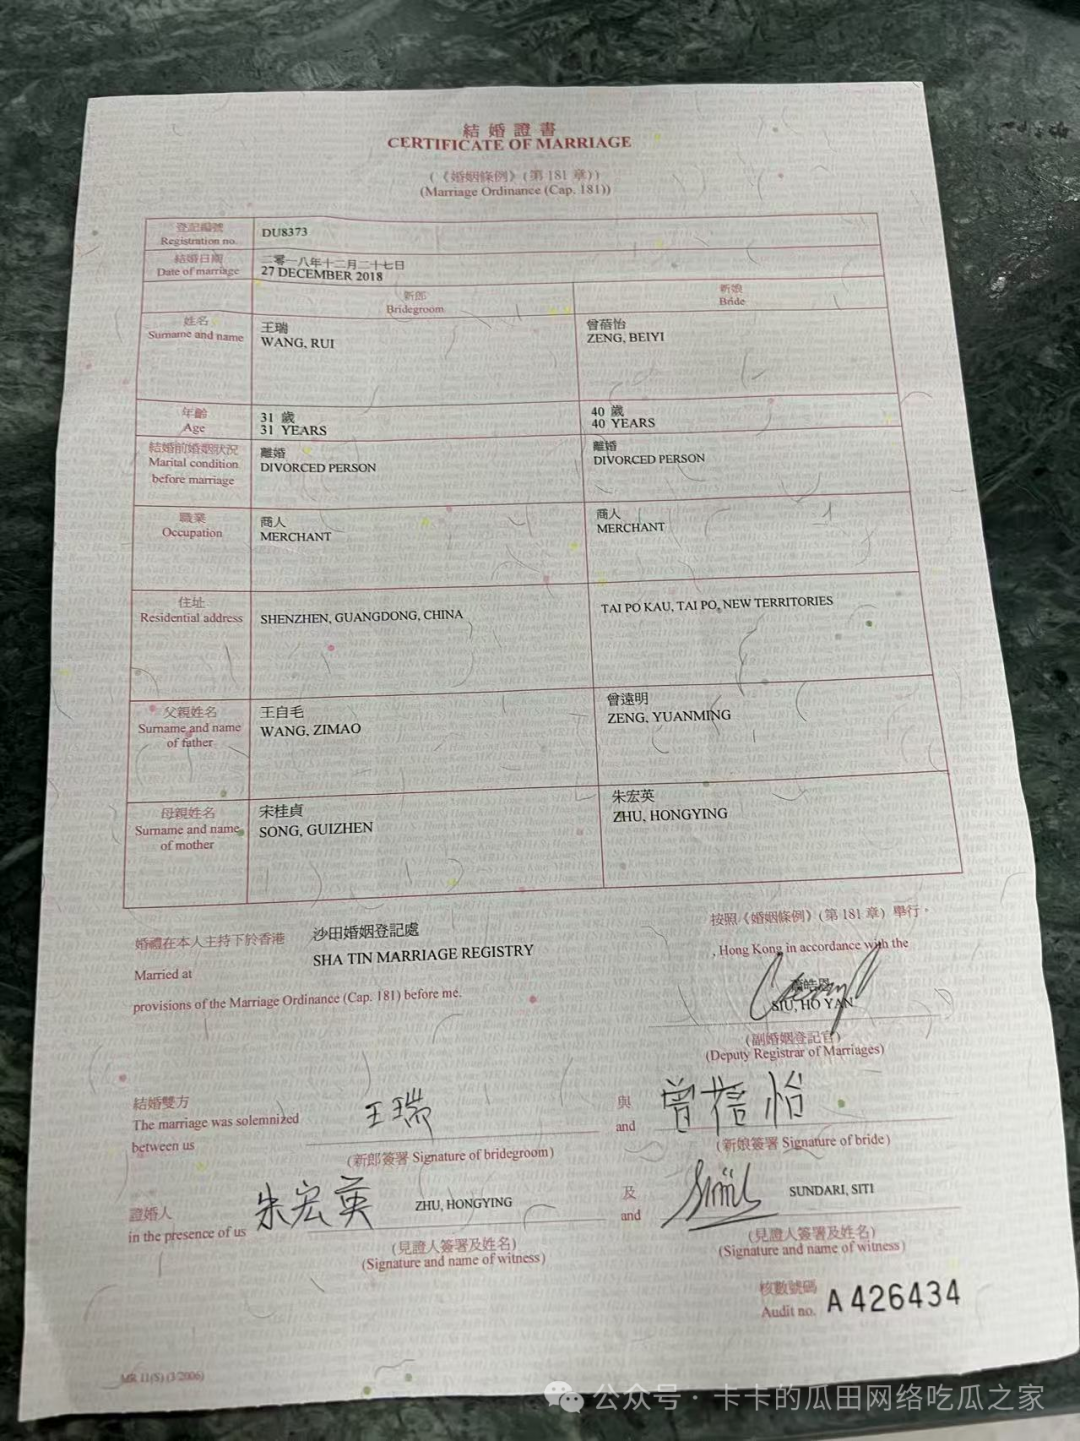 結婚證書
CERTIFICATE OF MARRIAGE
(《婚姻條例》(第 181 章))
(Marriage Ordinance (Cap. 181))
登記編號
Registration no.
DU8373
結婚日期
Date of marriage
二零一八年十二月二十七日
27 DECEMBER 2018
新郎
Bridegroom
新娘
Bride
姓名
Surname and name
王瑞
WANG, RUI
曾蓓怡
ZENG, BEIYI
年齡
Age
31 歲
31 YEARS
40 歲
40 YEARS
結婚前婚姻狀況
Marital condition
before marriage
離婚
DIVORCED PERSON
離婚
DIVORCED PERSON
職業
Occupation
商人
MERCHANT
商人
MERCHANT
住址
Residential address
SHENZHEN, GUANGDONG, CHINA
TAI PO KAU, TAI PO, NEW TERRITORIES
父親姓名
Surname and name
of father
王自毛
WANG, ZIMAO
曾遠明
ZENG, YUANMING
母親姓名
Surname and name
of mother
宋桂貞
SONG, GUIZHEN
朱宏英
ZHU, HONGYING
婚禮在本人主持下於香港
沙田婚姻登記處
按照《婚姻條例》(第 181 章) 舉行。
Married at
SHA TIN MARRIAGE REGISTRY
, Hong Kong in accordance with the
provisions of the Marriage Ordinance (Cap. 181) before me.
SIU, HO YAN
(副婚姻登記官)
(Deputy Registrar of Marriages)
結婚雙方
The marriage was solemnized
between us
王瑞
(新郎簽署 Signature of bridegroom)
與
and
曾蓓怡
(新娘簽署 Signature of bride)
證婚人
in the presence of us
朱宏英
ZHU, HONGYING
(見證人簽署及姓名)
(Signature and name of witness)
及
and
SUNDARI, SITI
(見證人簽署及姓名)
(Signature and name of witness)
核數號碼
Audit no.
A 426434
MR 11(S) (3/2006)
公众号 · 卡卡的瓜田网络吃瓜之家